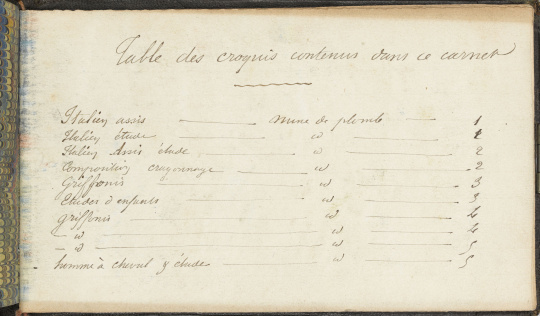 Table des croquis contenus dans ce carnet
Italien assis mine de plomb 1
Italien étude id 1
Italien Assis étude id 2
Composition crayonnage id 2
Griffonis id 3
Etudes d'enfants id 3
griffonis id 4
— id id 4
— id id 5
homme à cheval & étude id 5